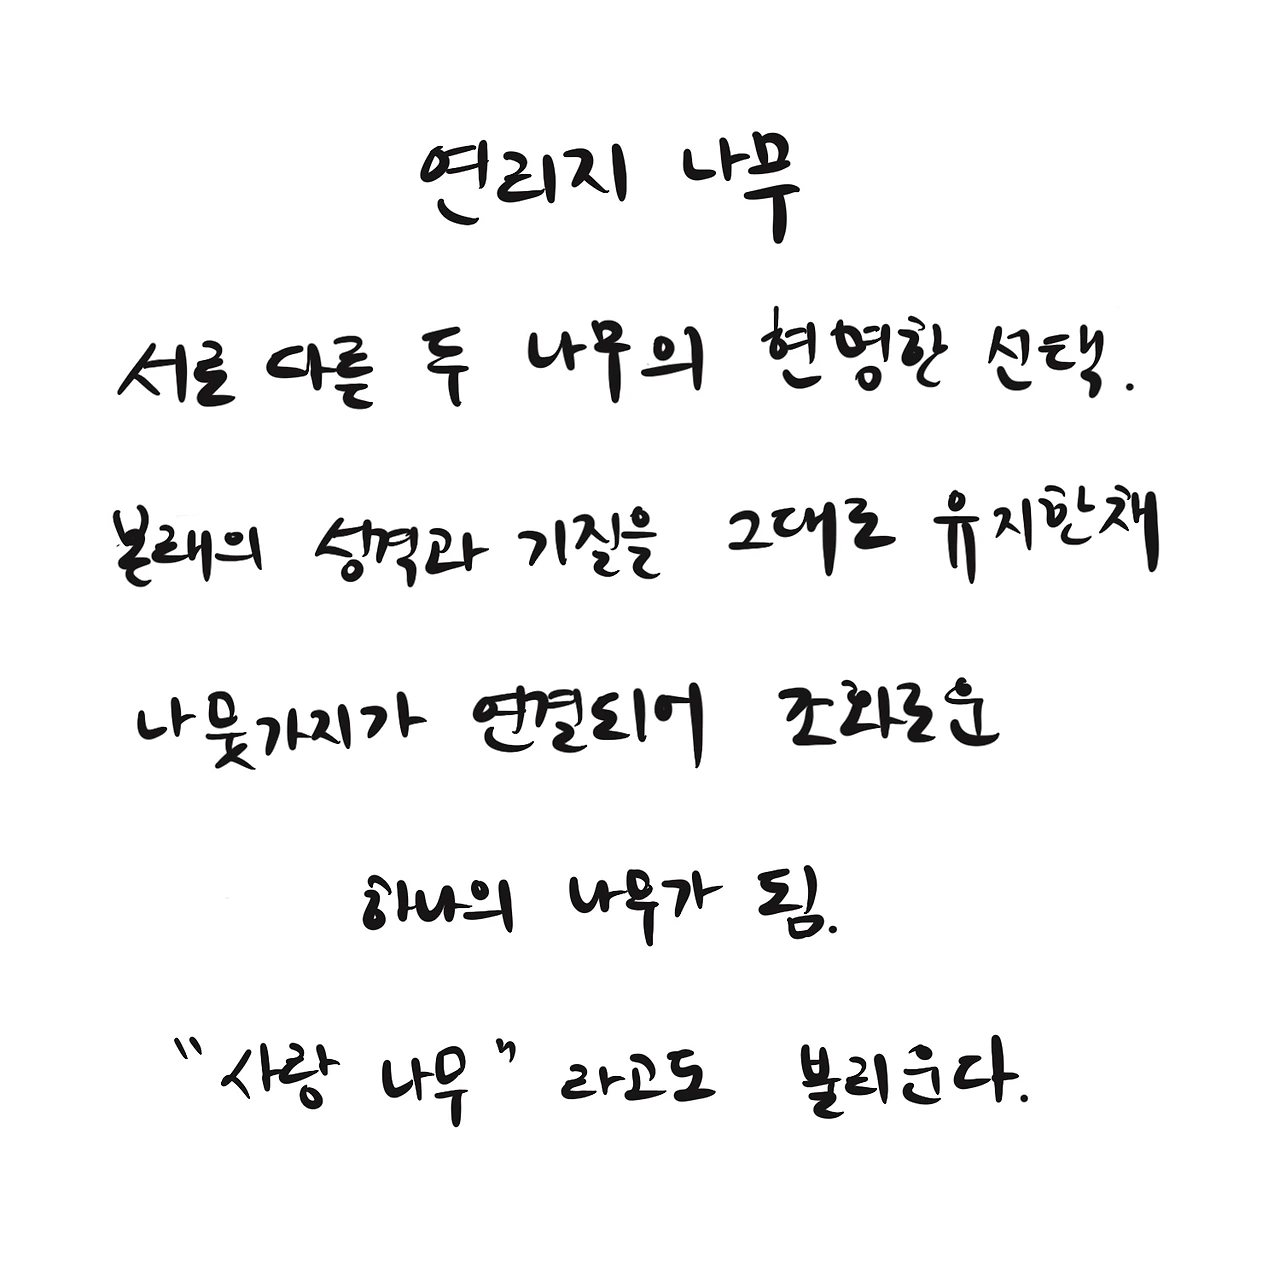 연리지 나무
서로 다른 두 나무의 현명한 선택.
본래의 성격과 기질을 그대로 유지한채
나뭇가지가 연결되어 조화로운
하나의 나무가 됨.
"사랑 나무" 라고도 불리운다.